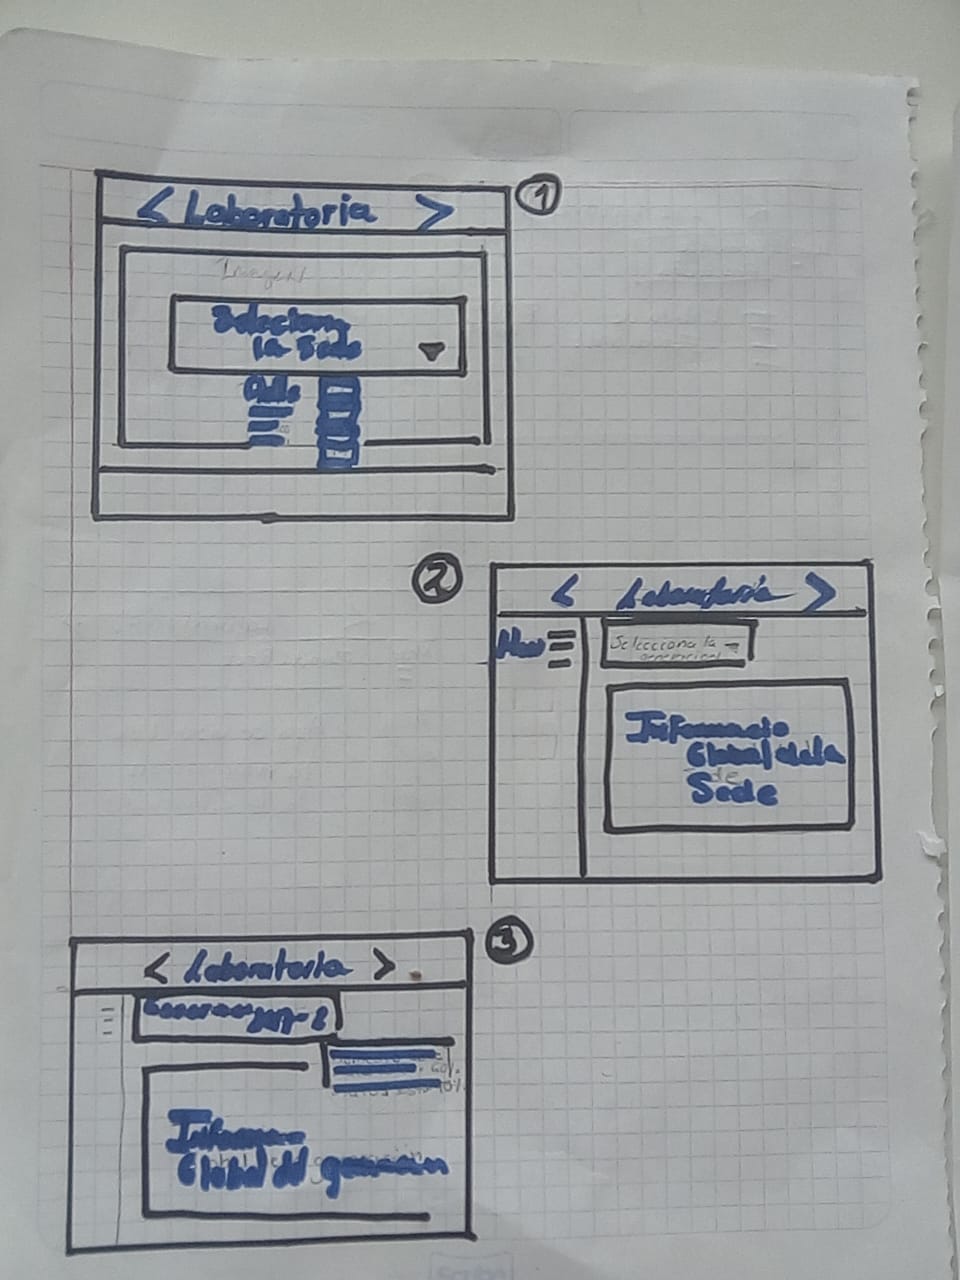 < Laboratoria >
1
Imagen
Selecciona
la Sede
Chile
2
< Laboratoria >
Menu
Selecciona la
generacion
Informacio
Global de la
Sede
3
< Laboratoria >
Generacion 2017-2
60%
40%
Informacion
Global del generacion